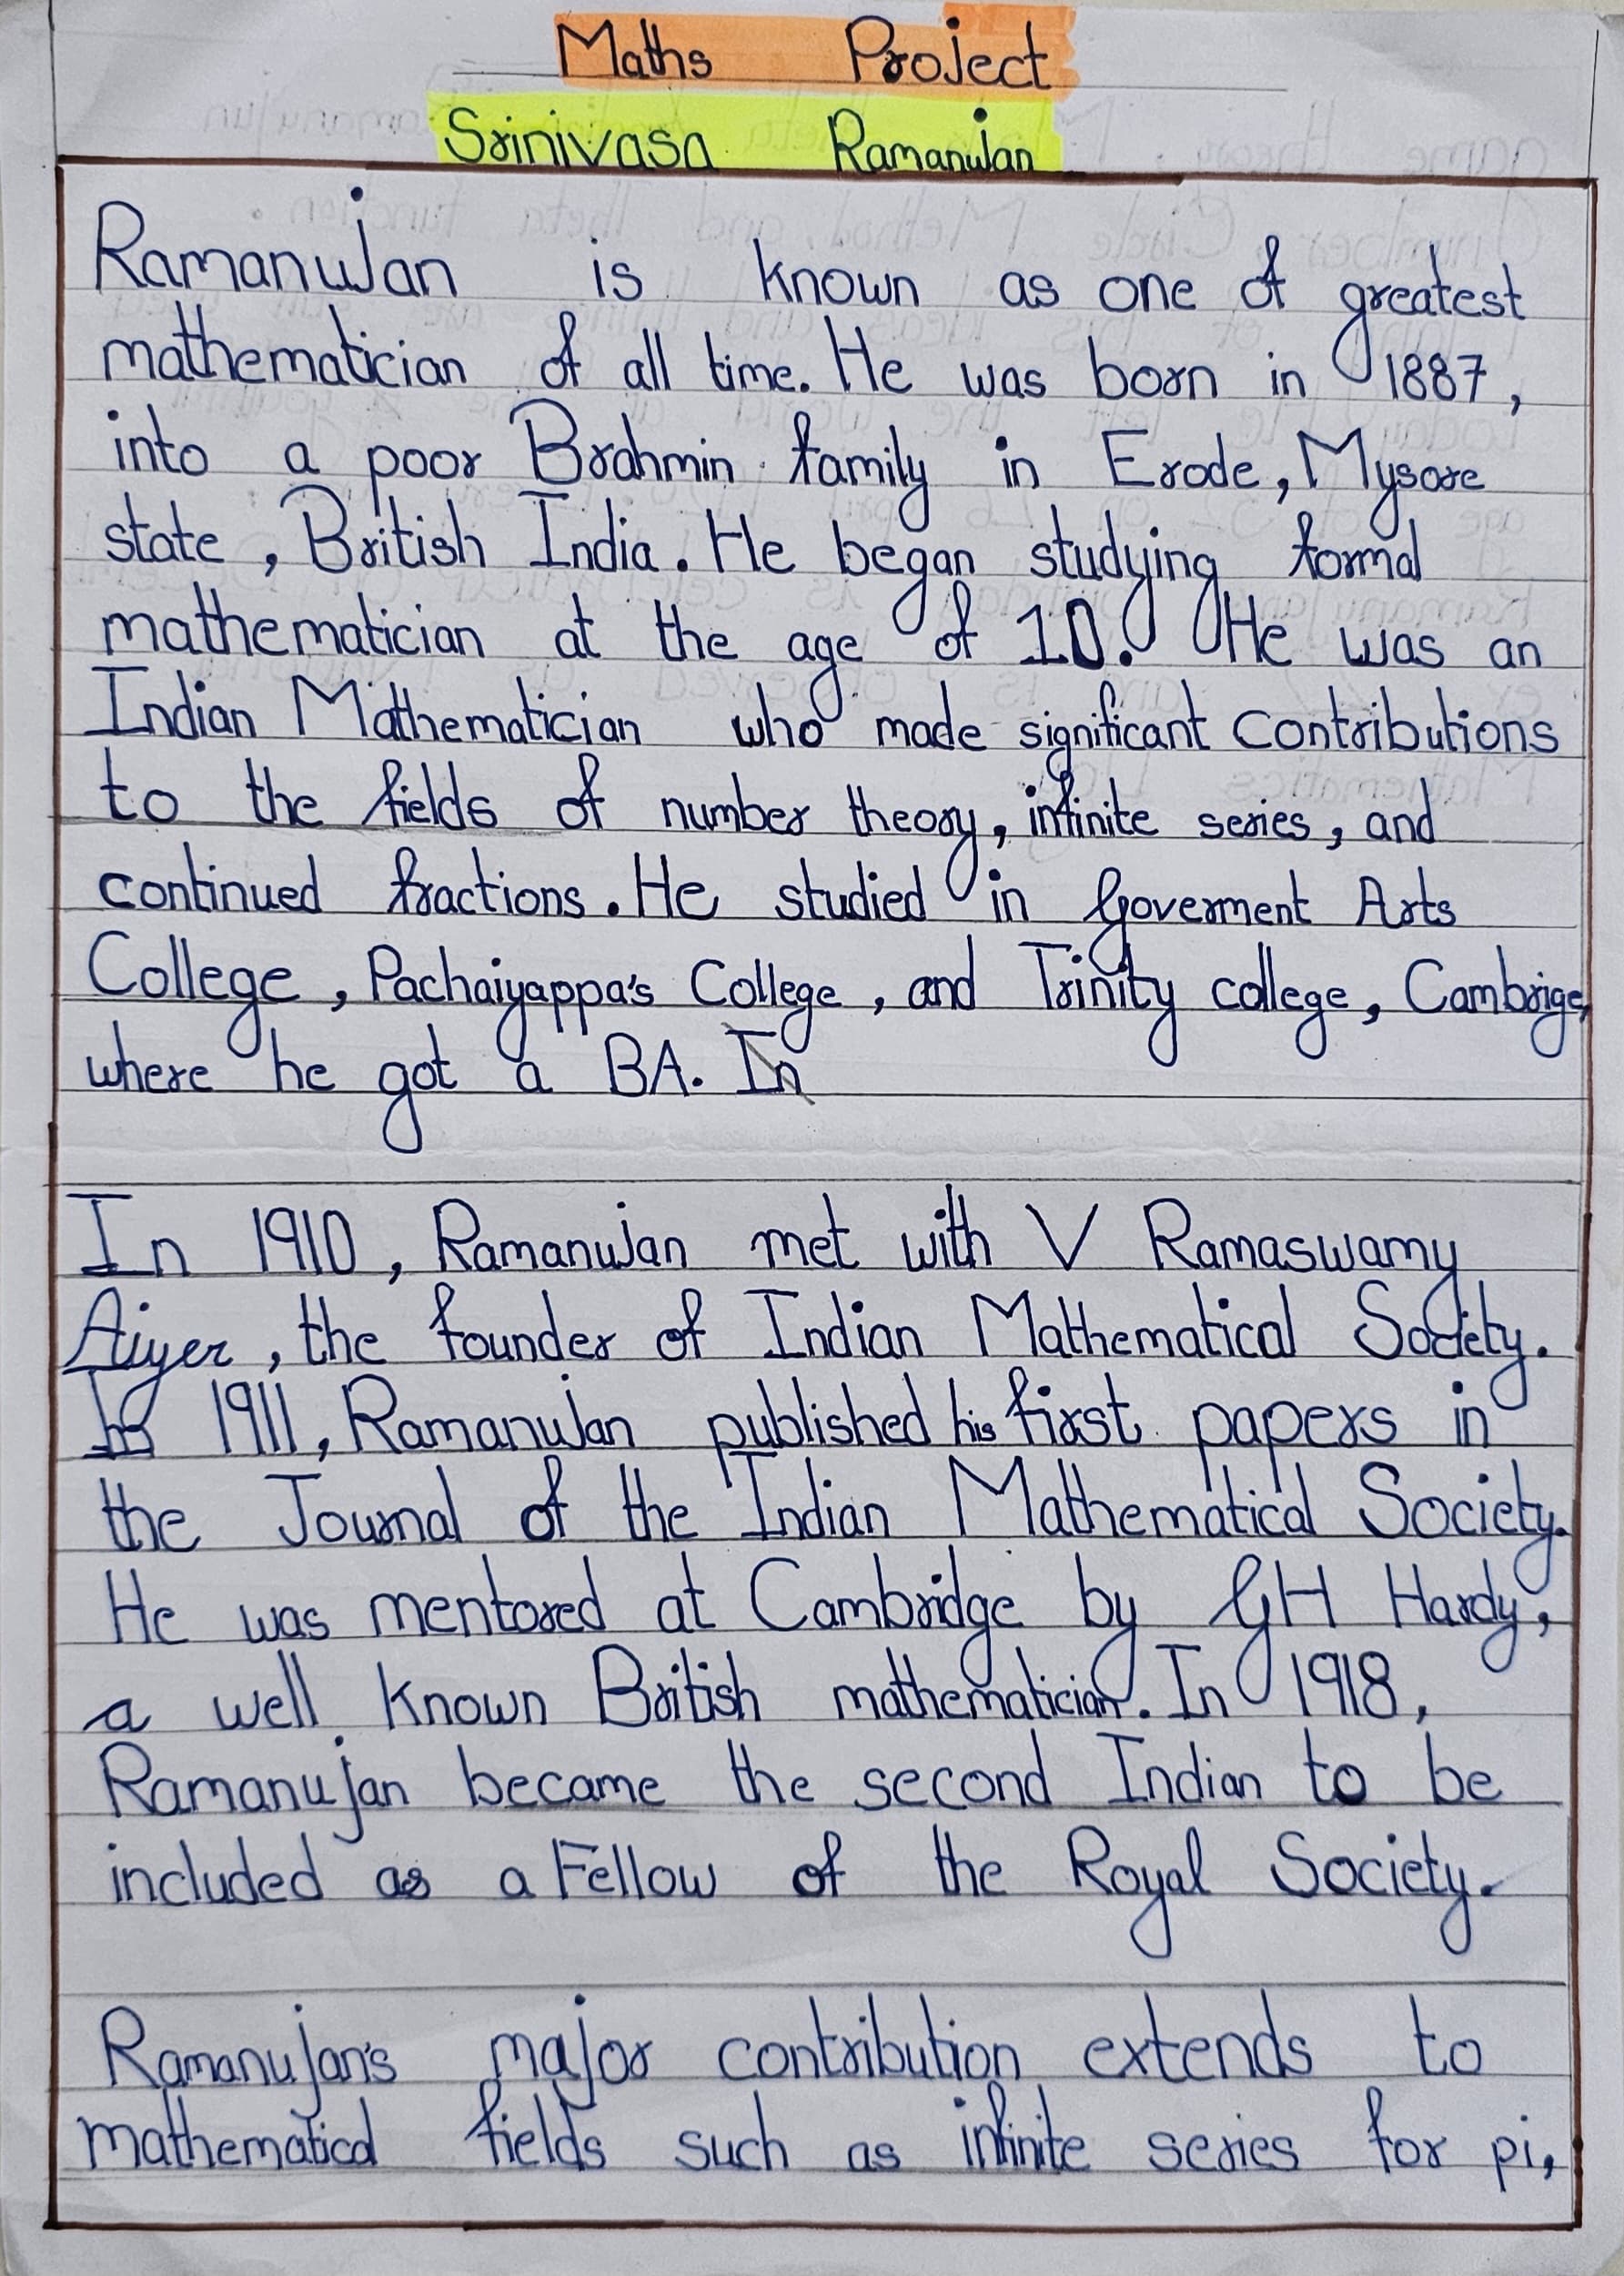 Maths Project
Srinivasa Ramanujan
Ramanujan is known as one of greatest
mathematician of all time. He was born in 1887,
into a poor Brahmin family in Erode, Mysore
state, British India. He began studying formal
mathematician at the age of 10. He was an
Indian Mathematician who made significant contributions
to the fields of number theory, infinite series, and
continued fractions. He studied in Goverment Arts
College, Pachaiyappa's College, and Trinity college, Cambrige,
where he got a BA. In
In 1910, Ramanujan met with V Ramaswamy
Aiyer, the founder of Indian Mathematical Society.
In 1911, Ramanujan published his first papers in
the Journal of the Indian Mathematical Society.
He was mentored at Cambridge by GH Hardy,
a well known British mathematician. In 1918,
Ramanujan became the second Indian to be
included as a Fellow of the Royal Society.
Ramanujan's major contribution extends to
mathematical fields such as infinite series for pi,